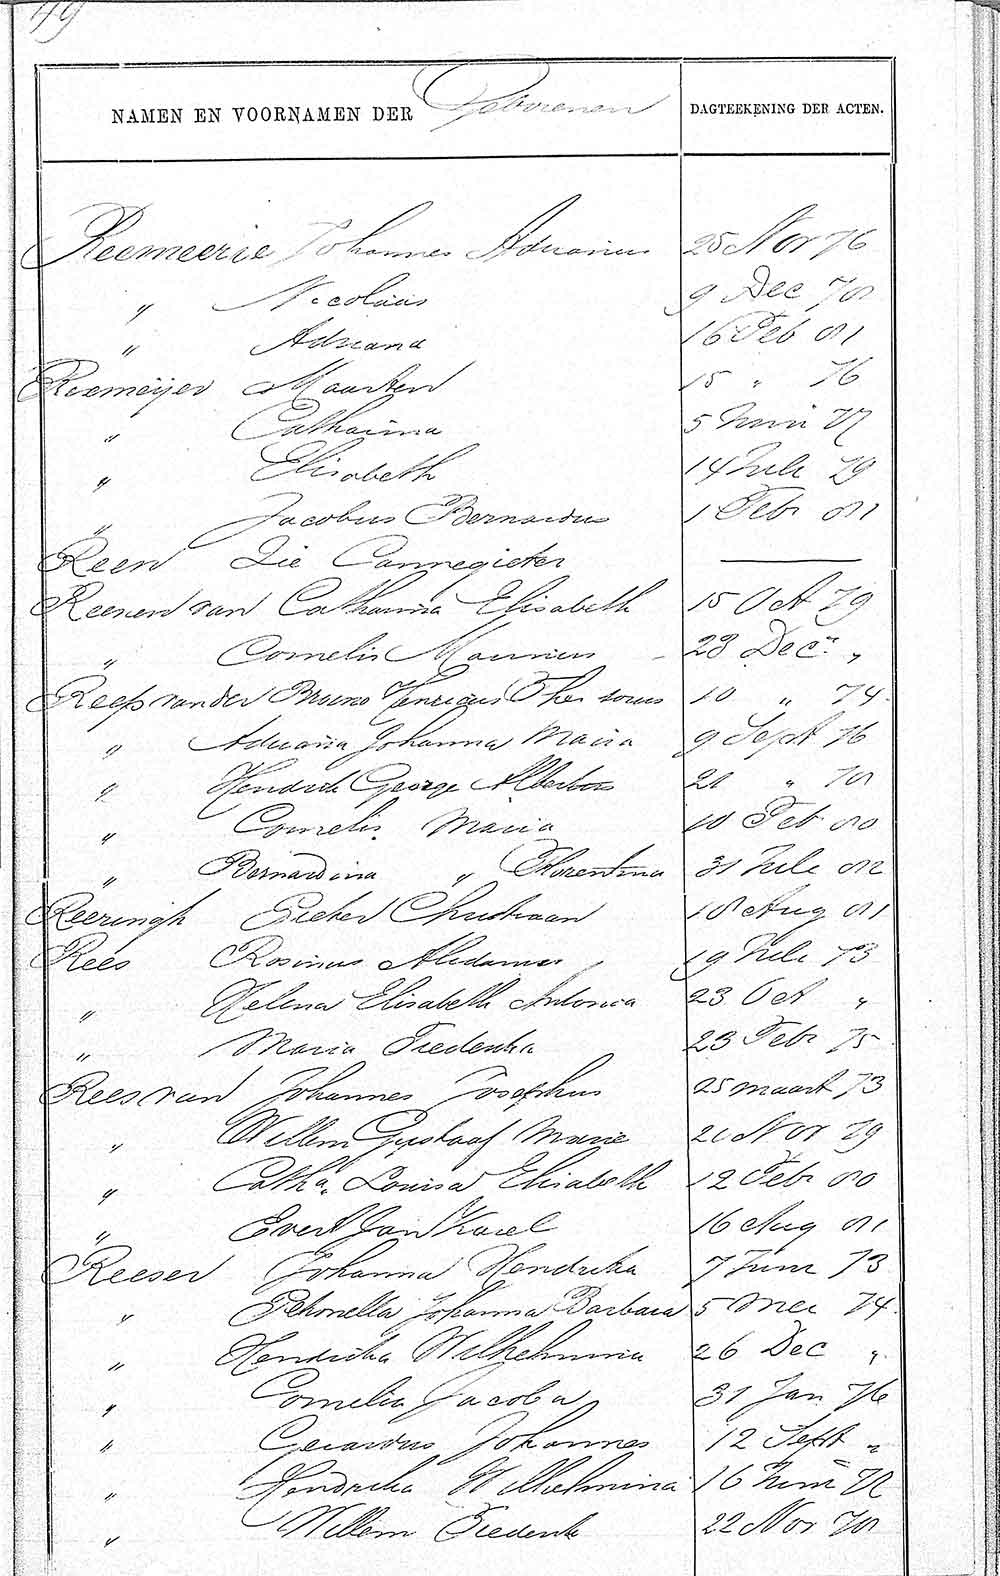 49
NAMEN EN VOORNAMEN DER Geborenen DAGTEEKENING DER ACTEN.
Reemeerie Johannes Adrianus 25 Nov 76
" Nicolaas 9 Dec 78
" Adriana 16 Feb 81
Reemeijer Maarten 15 " 76
" Catharina 5 Juni 77
" Elisabeth 14 Juli 79
" Jacobus Bernardus 1 Febr 81
Reen Zie Cannegieter
Reenen van Catharina Elisabeth 15 Oct 79
" Cornelis Marinus 23 Decr "
Reeps van der Bruno Henricus 10 " 74
" Adriana Johanna Maria 9 Sept 76
" Hendrik George Albertus 21 " 78
" Cornelis Maria 10 Feb 80
" Bernardina " Florentina 31 Juli 82
Reeringh Pieter Christiaan 18 Aug 81
Rees Rosinus Alidanus 19 Juli 73
" Helena Elisabeth Antonia 23 Oct "
" Maria Frederika 23 Febr 75
Rees van Johannes Josephus 25 maart 73
" Willem Gustaaf Marie 21 Nov 79
" Catha. Louisa Elisabeth 12 Febr 80
" Evert Jan Karel 16 Aug 81
Reeser Johanna Hendrika 7 Juni 73
" Petronella Johanna Barbara 5 Mei 74
" Hendrika Wilhelmina 26 Dec "
" Cornelia Jacoba 31 Jan 76
" Gerardus Johannes 12 Sept "
" Hendrika Wilhelmina 16 Juni 77
" Willem Frederik 22 Nov 78